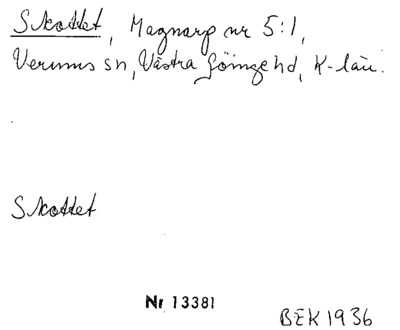 Skottet, Magnarp nr 5:1,
Verums sn, Västra Göinge hd, K-län.
Skottet
Nr 13381
BEK 1936